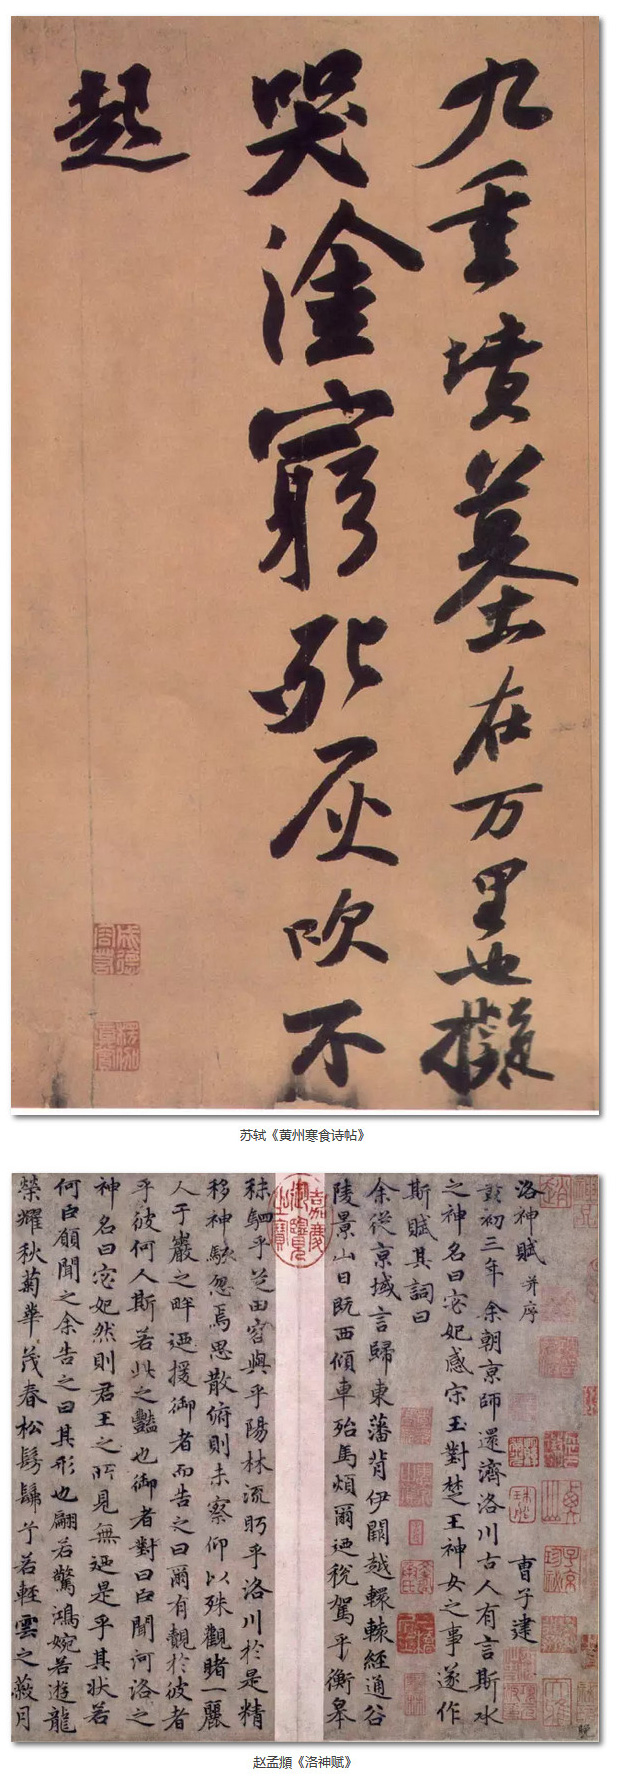 九重墳墓在万里也擬
哭塗窮死灰吹不
起
苏轼《黄州寒食诗帖》
洛神賦 并序 曹子建
黃初三年余朝京師還濟洛川古人有言斯水
之神名曰宓妃感宋玉對楚王神女之事遂作
斯賦其詞曰
余從京域言歸東藩背伊闕越轘轅經通谷
陵景山日既西傾車殆馬煩爾迺稅駕乎衡皋
嘉慶御覽之寶
秣駟乎芝田容與乎陽林流眄乎洛川於是精
移神駭忽焉思散俯則未察仰以殊觀睹一麗
人于巖之畔迺援御者而告之曰爾有覿於彼者
乎彼何人斯若此之豔也御者對曰臣聞河洛之
神名曰宓妃然則君王之所見無迺是乎其狀若
何臣願聞之余告之曰其形也翩若驚鴻婉若遊龍
榮耀秋菊華茂春松髣髴兮若輕雲之蔽月
赵孟頫《洛神赋》